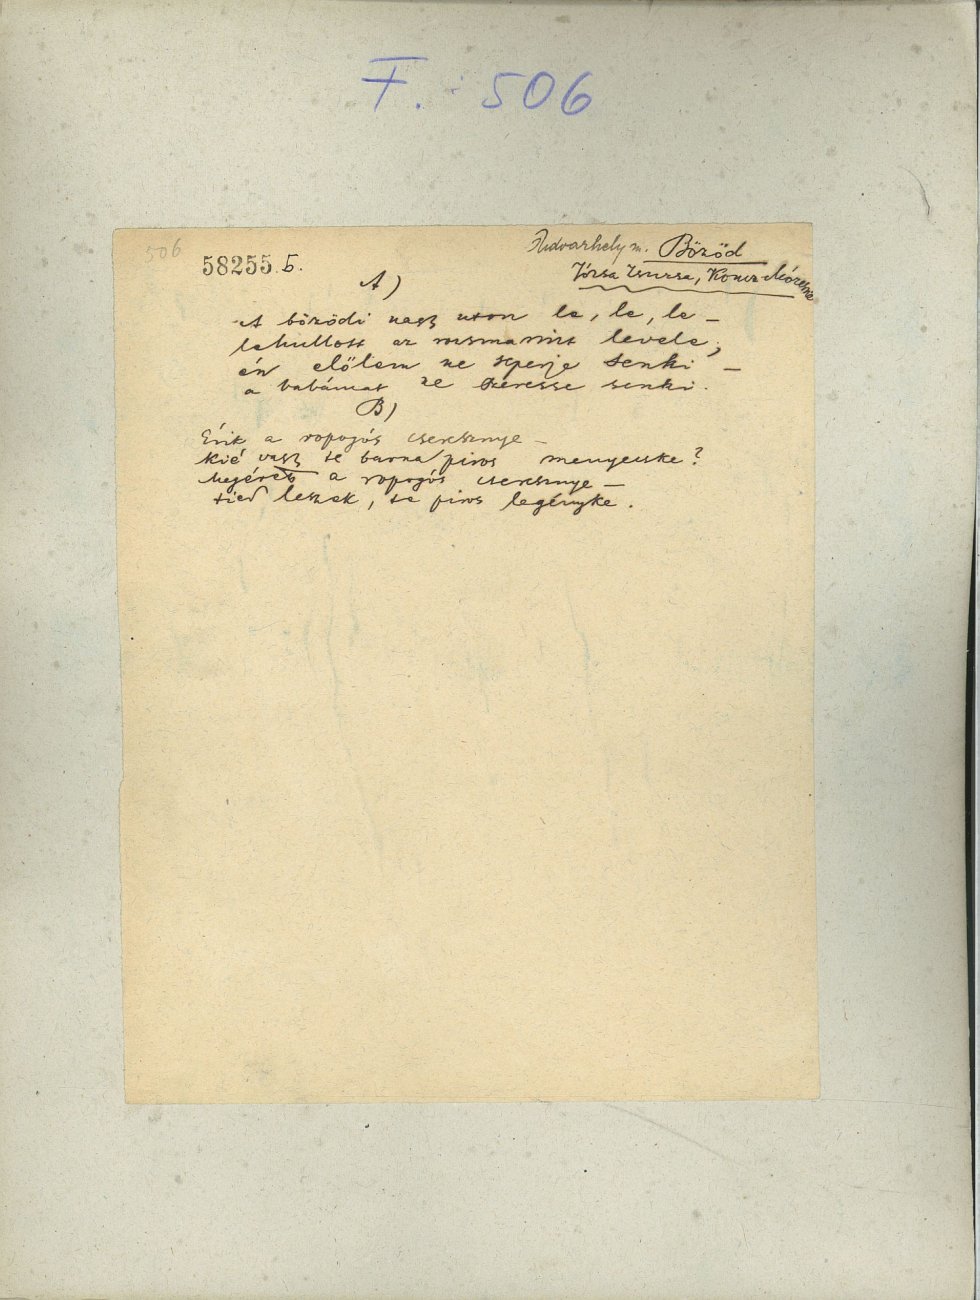 F. 506
506
Udvarhely m. Bözöd
58255.5.
Józsa Zsuzsa, Koncz Mózesné
A)
A bözödi nagy uton le, le, le –
lehullott az rozmarint levele;
én előlem ne seperje senki –
a babámat ne szeresse senki.
B)
Érik a ropogós cseresznye –
kié vagy te barna piros menyecske?
Megérett a ropogós cseresznye –
tied leszek, te piros legényke.